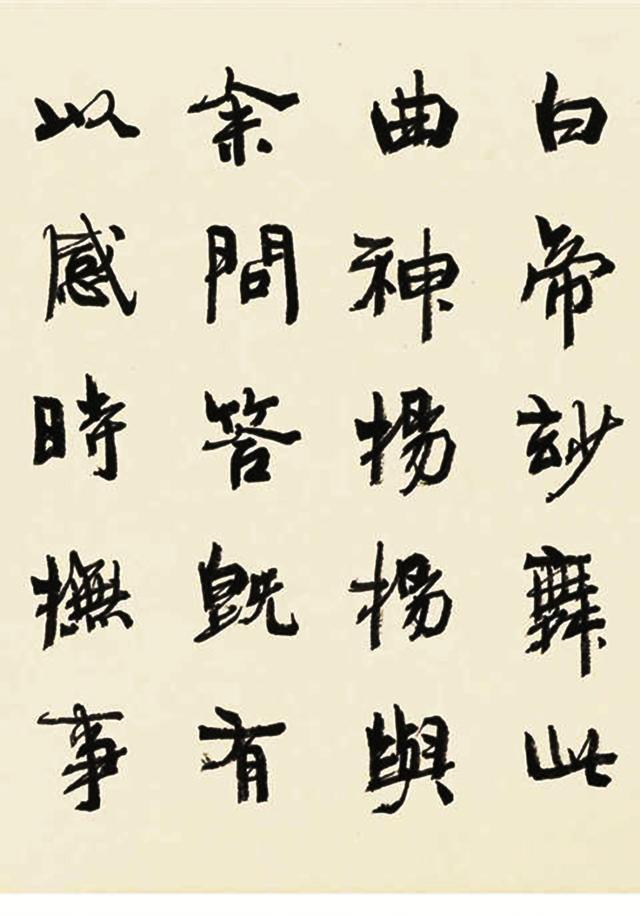 白帝玅舞此
曲神揚揚與
余問答既有
以感時撫事